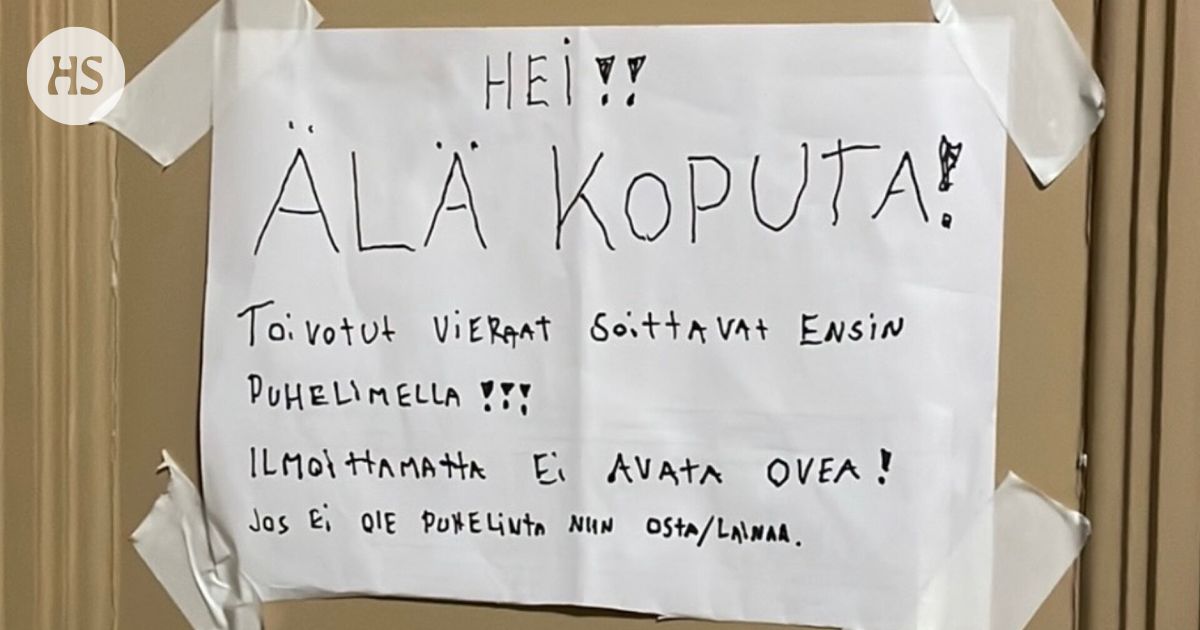 HS
HEI!!
ÄLÄ KOPUTA!
Toivotut vieraat soittavat ensin
puhelimella!!!
Ilmoittamatta ei avata ovea!
Jos ei ole puhelinta niin osta/lainaa.